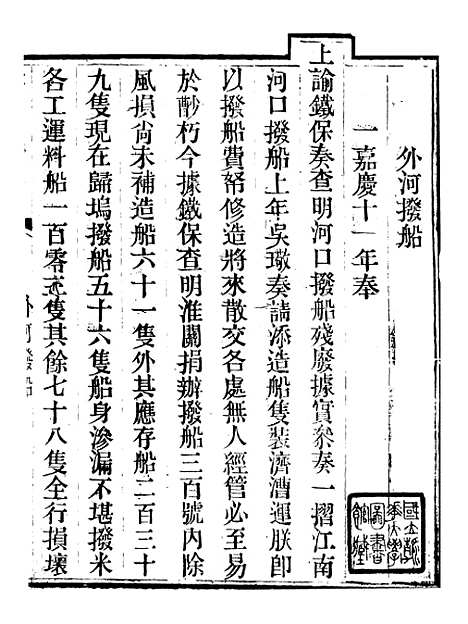 外河撥船
一嘉慶十一年奉
上諭鐵保奏查明河口撥船殘廢據實叅奏一摺江南
河口撥船上年吳璥奏請添造船隻裝濟漕運朕卽
以撥船費帑修造將來散交各處無人經管必至易
於酁朽今據鐵保查明淮關捐辦撥船三百號內除
風損尚未補造船六十一隻外其應存船二百三十
九隻現在歸塢撥船五十六隻船身滲漏不堪撥米
各工運料船一百零五隻其餘七十八隻全行損壞
外河撥船